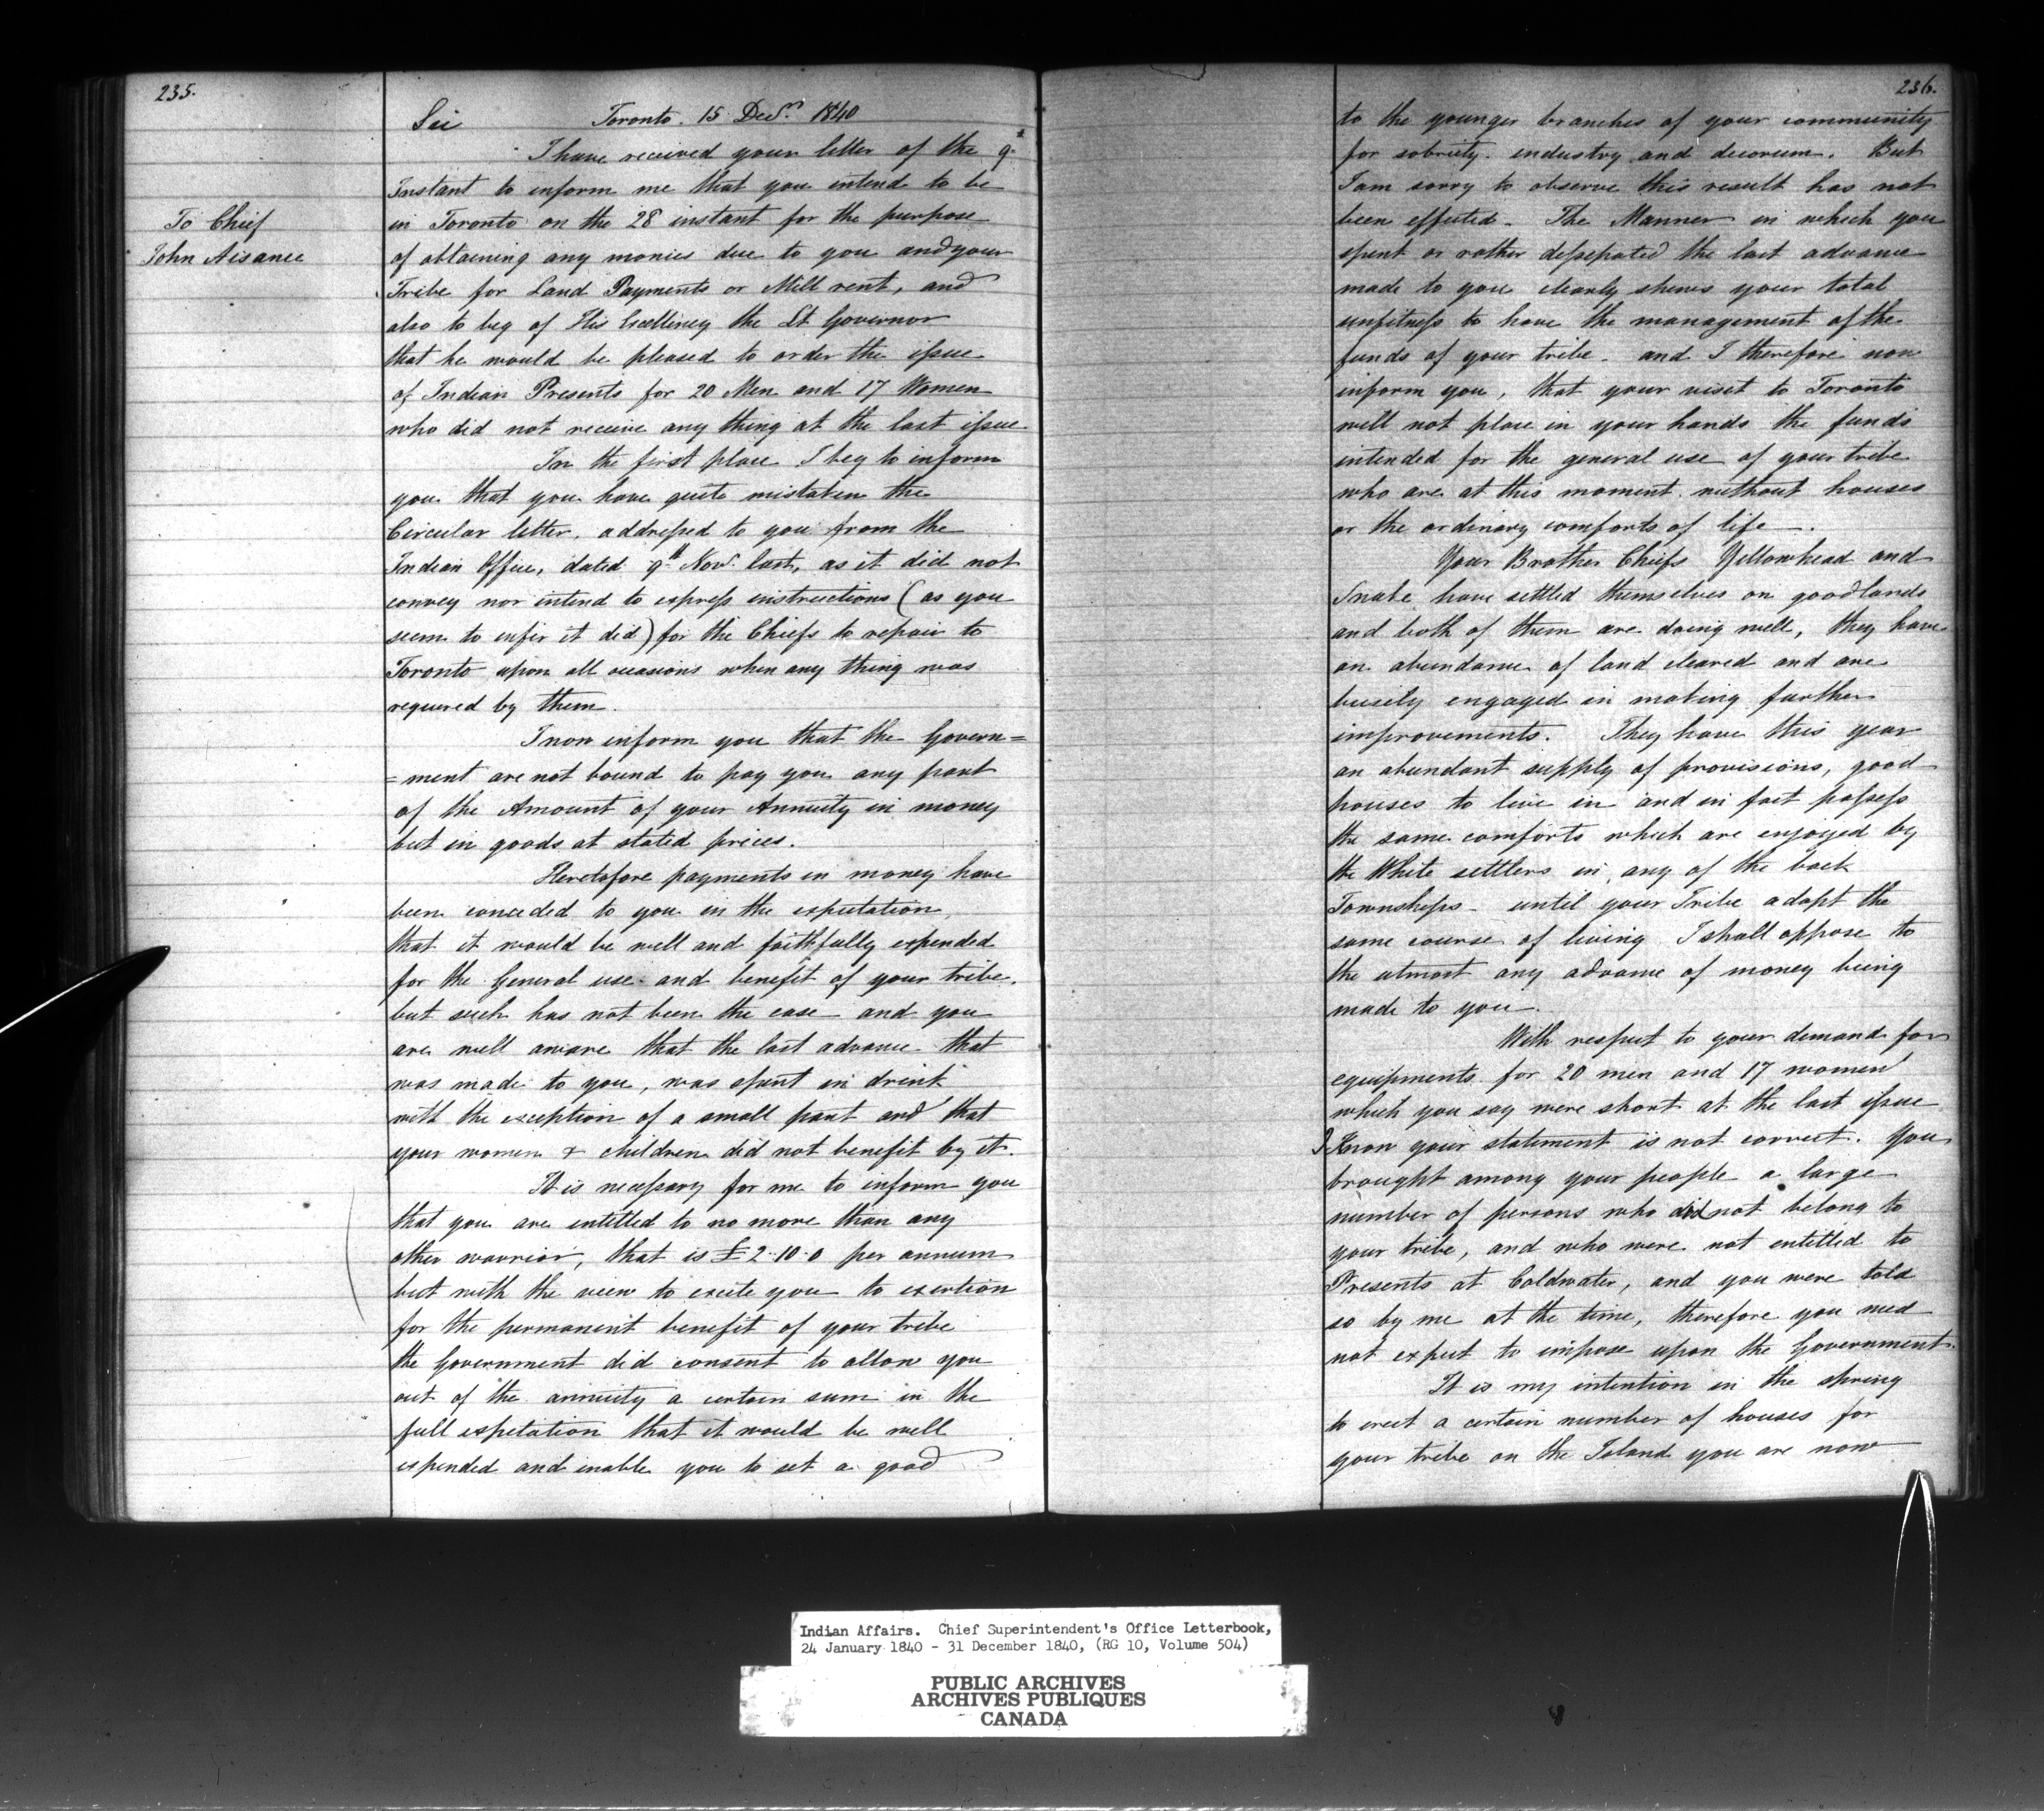 235.
Sir Toronto. 15 Decr. 1840
I have received your letter of the 9th
Instant to inform me that you intend to be
To Chief
John Aisance
in Toronto on the 28 instant for the purpose
of obtaining any monies due to you and your
Tribe for Land Payments or Mill rent, and
also to beg of His Excellency the Lt Governor
that he would be pleased to order the issue
of Indian Presents for 20 Men and 17 Women
who did not receive any thing at the last issue
In the first place I beg to inform
you that you have quite mistaken the
Circular letter, addressed to you from the
Indian Office, dated 9th Nov. last, as it did not
convey nor intend to express instructions (as you
seem to infer it did) for the Chiefs to repair to
Toronto upon all occasions when any thing was
required by them.
I now inform you that the Govern=
=ment are not bound to pay you any part
of the Amount of your Annuity in money
but in goods at stated prices.
Heretofore payments in money have
been conceded to you in the expectation,
that it would be well and faithfully expended
for the General use and benefit of your tribe.
but such has not been the case and you
are well aware that the last advance that
was made to you, was spent in drink
with the exception of a small part and that
your women & children did not benefit by it.
It is necessary for me to inform you
that you are entitled to no more than any
other warrior, that is £2.10.0 per annum
but with the view to excite you to exertion
for the permanent benefit of your tribe
the Government did consent to allow you
out of the annuity a certain sum in the
full expectation that it would be well
expended and enable you to set a good
236.
to the younger branches of your community
for sobriety. industry and decorum. But
I am sorry to observe this result has not
been effected. The Manner in which you
spent or rather dissepated the last advance
made to you clearly shews your total
unfitness to have the management of the
funds of your tribe. and I therefore now
inform you, that your visit to Toronto
will not place in your hands the funds
intended for the general use of your tribe
who are at this moment without houses
or the ordinary comforts of life.
Your Brother Chiefs Yellowhead and
Snake have settled themselves on good lands
and both of them are doing well, they have
an abundance of land cleared and are
busily engaged in making further
improvements. They have this year
an abundant supply of provisions, good
houses to live in and in fact possess
the same comforts which are enjoyed by
the White settlers in any of the back
Townships - until your Tribe adopt the
same course of living I shall oppose to
the utmost any advance of money being
made to you.
With respect to your demand for
equipments for 20 men and 17 women
which you say were short at the last issue
I Know your statement is not correct. You
brought among your people a large
number of persons who did not belong to
your tribe, and who were not entitled to
Presents at Coldwater, and you were told
so by me at the time, therefore you need
not expect to impose upon the Government.
It is my intention in the spring
to erect a certain number of houses for
your tribe on the Island you are now
Indian Affairs. Chief Superintendent's Office Letterbook,
24 January 1840 - 31 December 1840, (RG 10, Volume 504)
PUBLIC ARCHIVES
ARCHIVES PUBLIQUES
CANADA